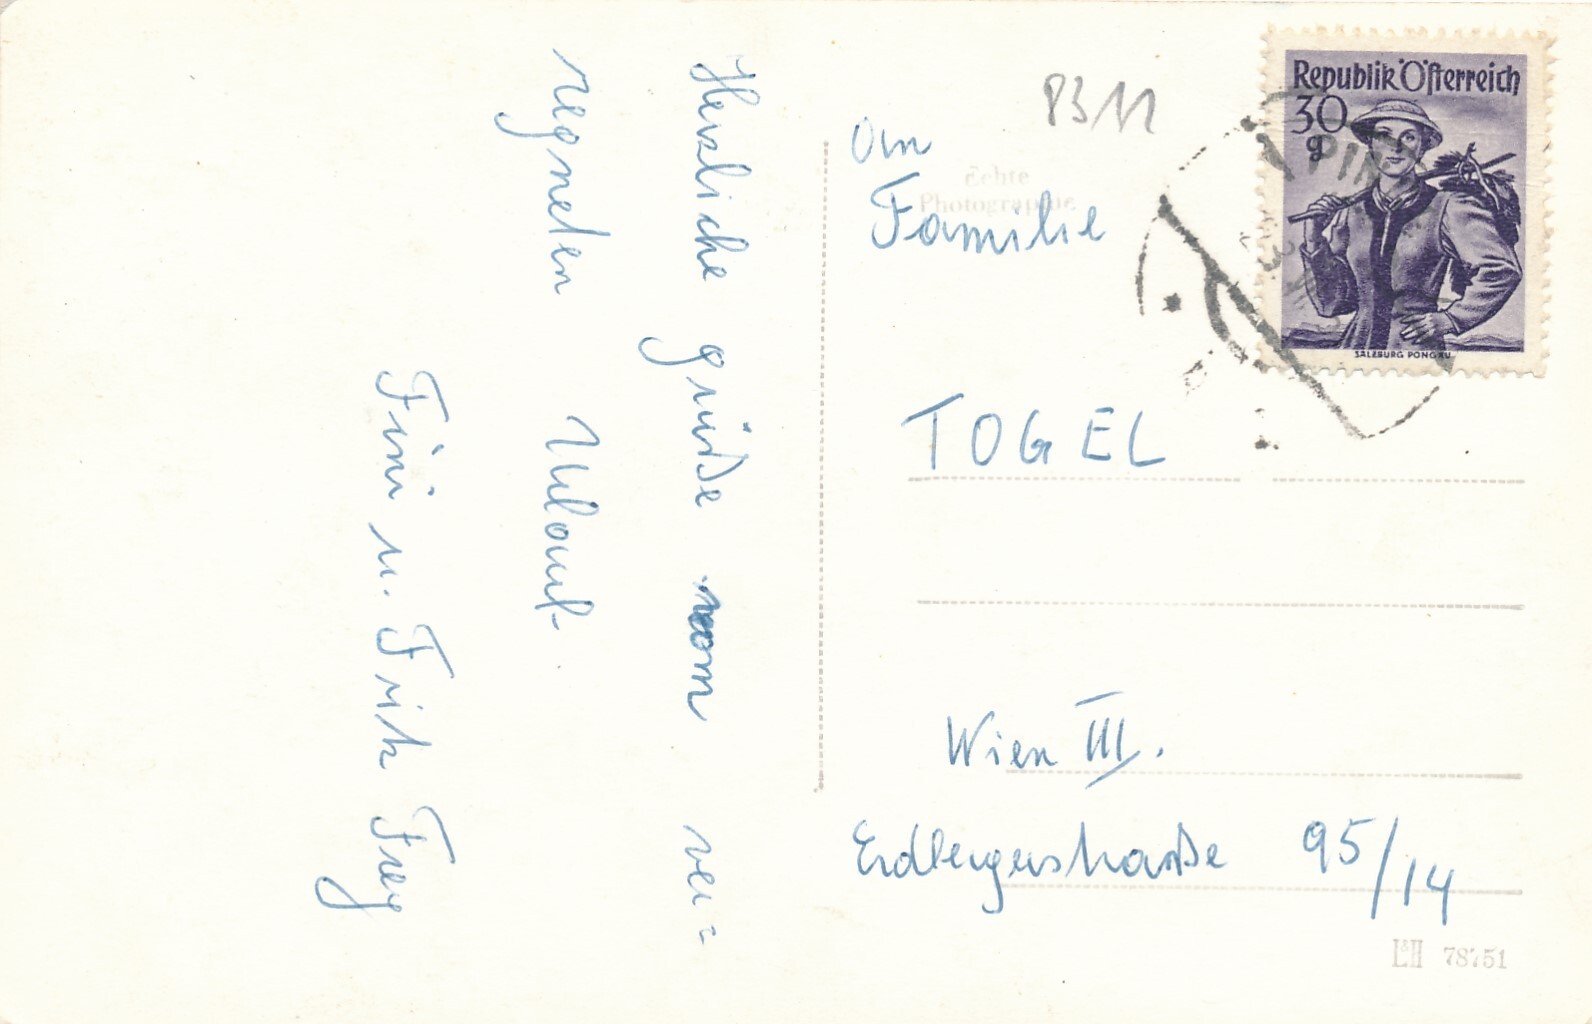 Herzliche grüße vom ver=
regneten Urlaub.
Fini u. Fritz Frey
8311
An
Familie
Echte
Photographie
TOGEL
Wien III.
Erdbergerstraße 95/14
L&H 78751
Republik Österreich
30
g
SALZBURG PONGAU